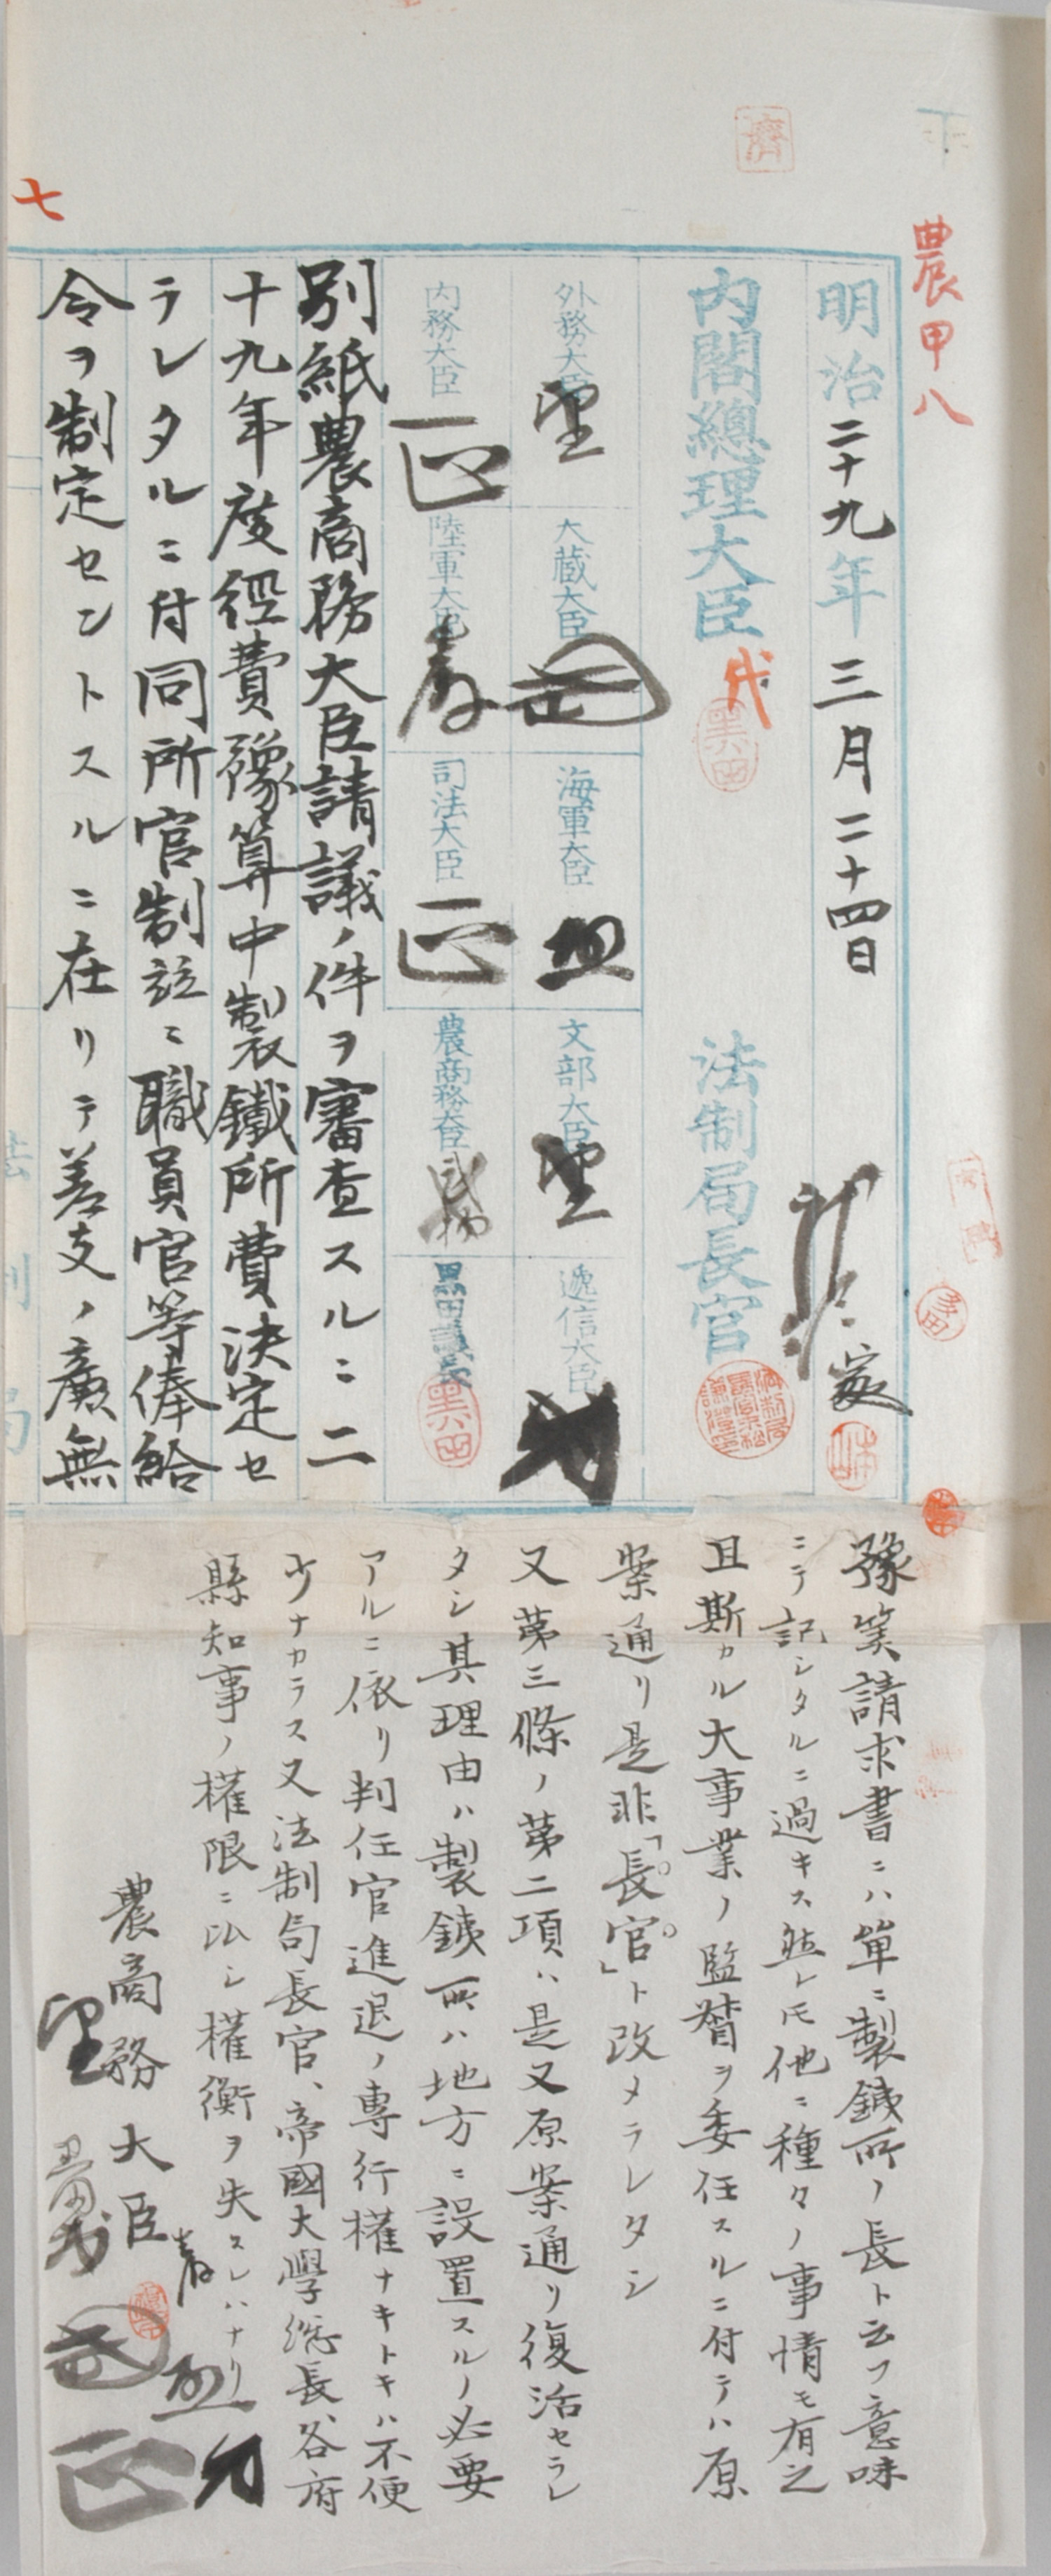 農甲八
明治二十九年三月二十四日
内閣總理大臣 代 黑田
法制局長官
外務大臣
大藏大臣
海軍大臣
文部大臣
遞信大臣
内務大臣
陸軍大臣
司法大臣
農商務大臣
黒田議長 黑田
別紙農商務大臣請議ノ件ヲ審査スルニ二
十九年度經費豫算中製鐵所費決定セ
ラレタルニ付同所官制竝ニ職員官等俸給
令ヲ制定セントスルニ在リテ差支ノ廉無
七
豫筭請求書ニハ單ニ製銕所ノ長ト云フ意味
ニテ記シタルニ過キス然レ𪜈他ニ種々ノ事情モ有之
且斯カル大事業ノ監督ヲ委任スルニ付テハ原
案通リ是非「長官」ト改メラレタシ
又第三條ノ第二項ハ是又原案通リ復活セラレ
タシ其理由ハ製銕所ハ地方ニ設置スルノ必要
アルニ依リ判任官進退ノ専行權ナキトキハ不便
少ナカラス又法制局長官、帝國大學総長、各府
縣知事ノ權限ニ比シ權衡ヲ失スレハナリ
農商務大臣